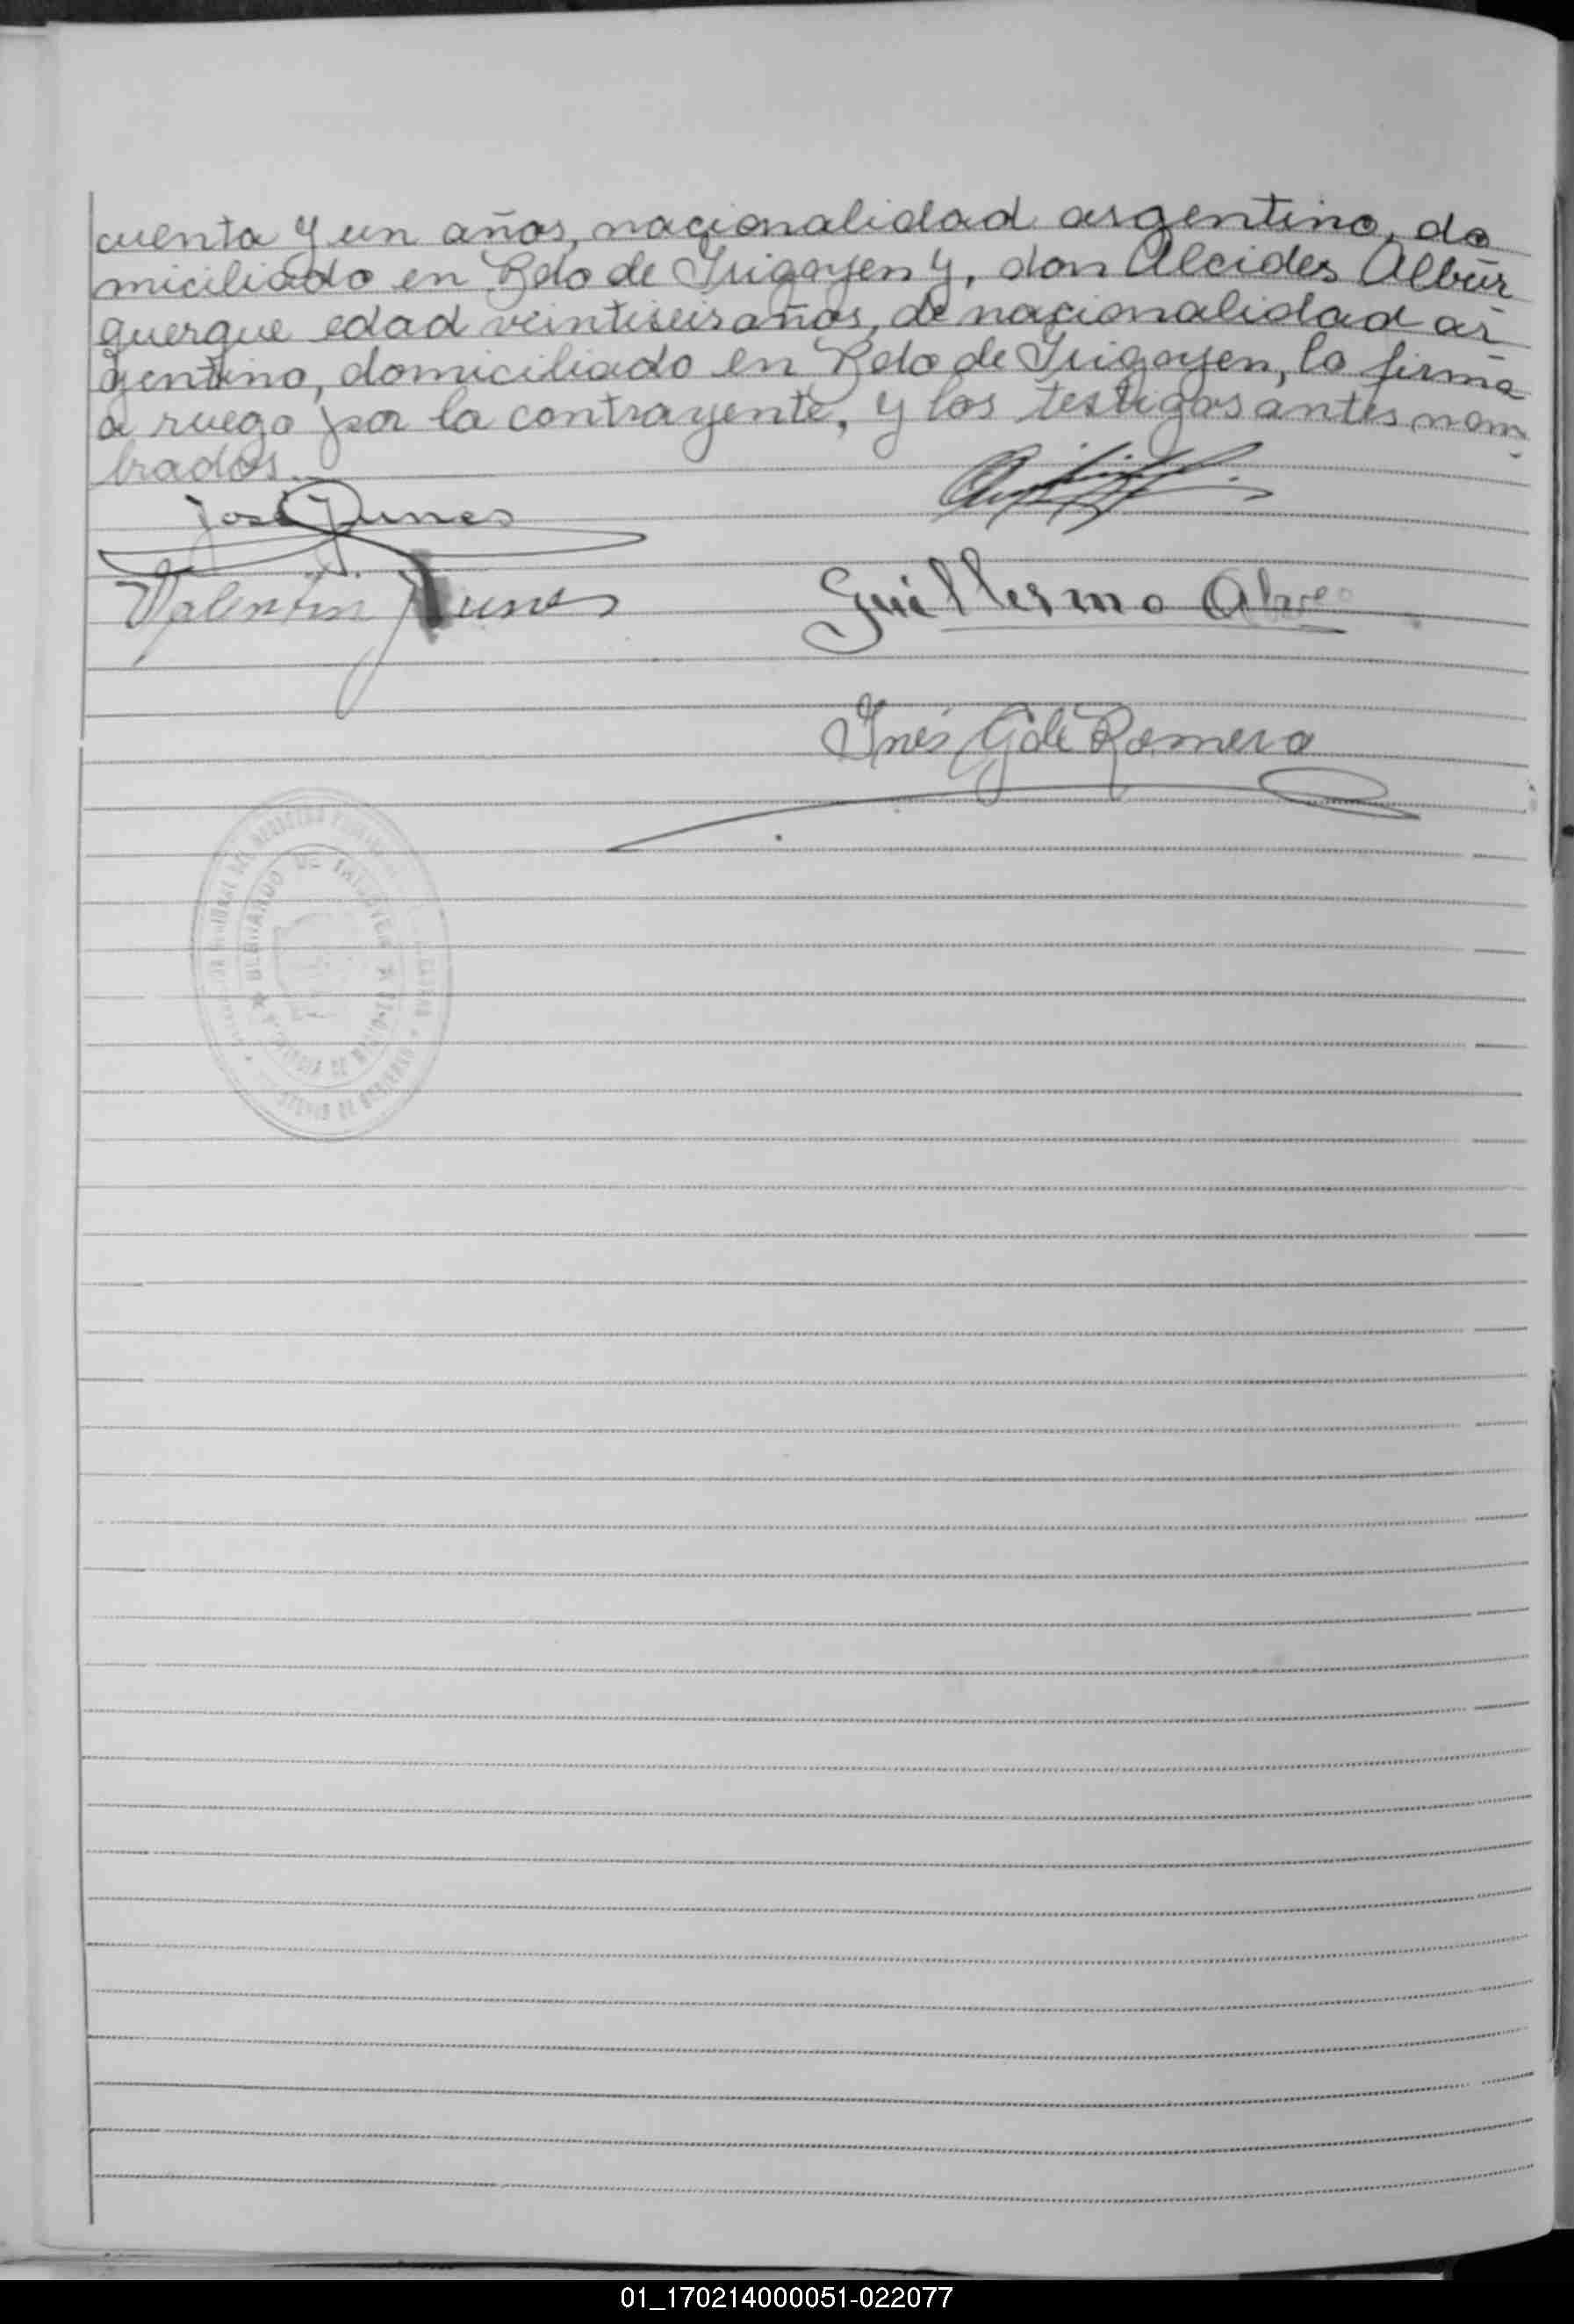 cuenta y un años, nacionalidad argentino, do
miciliado en Bdo de Irigoyen y, don Alcides Albur
querque edad veintiseis años, de nacionalidad ar
gentino, domiciliado en Bdo de Irigoyen, lo firma
a ruego por la contrayente, y los testigos antes nom
brados.
José Nunes
Valentin Nunes
Guillermo
Inés G de Romero
BERNARDO DE IRIGOYEN
01_170214000051-022077